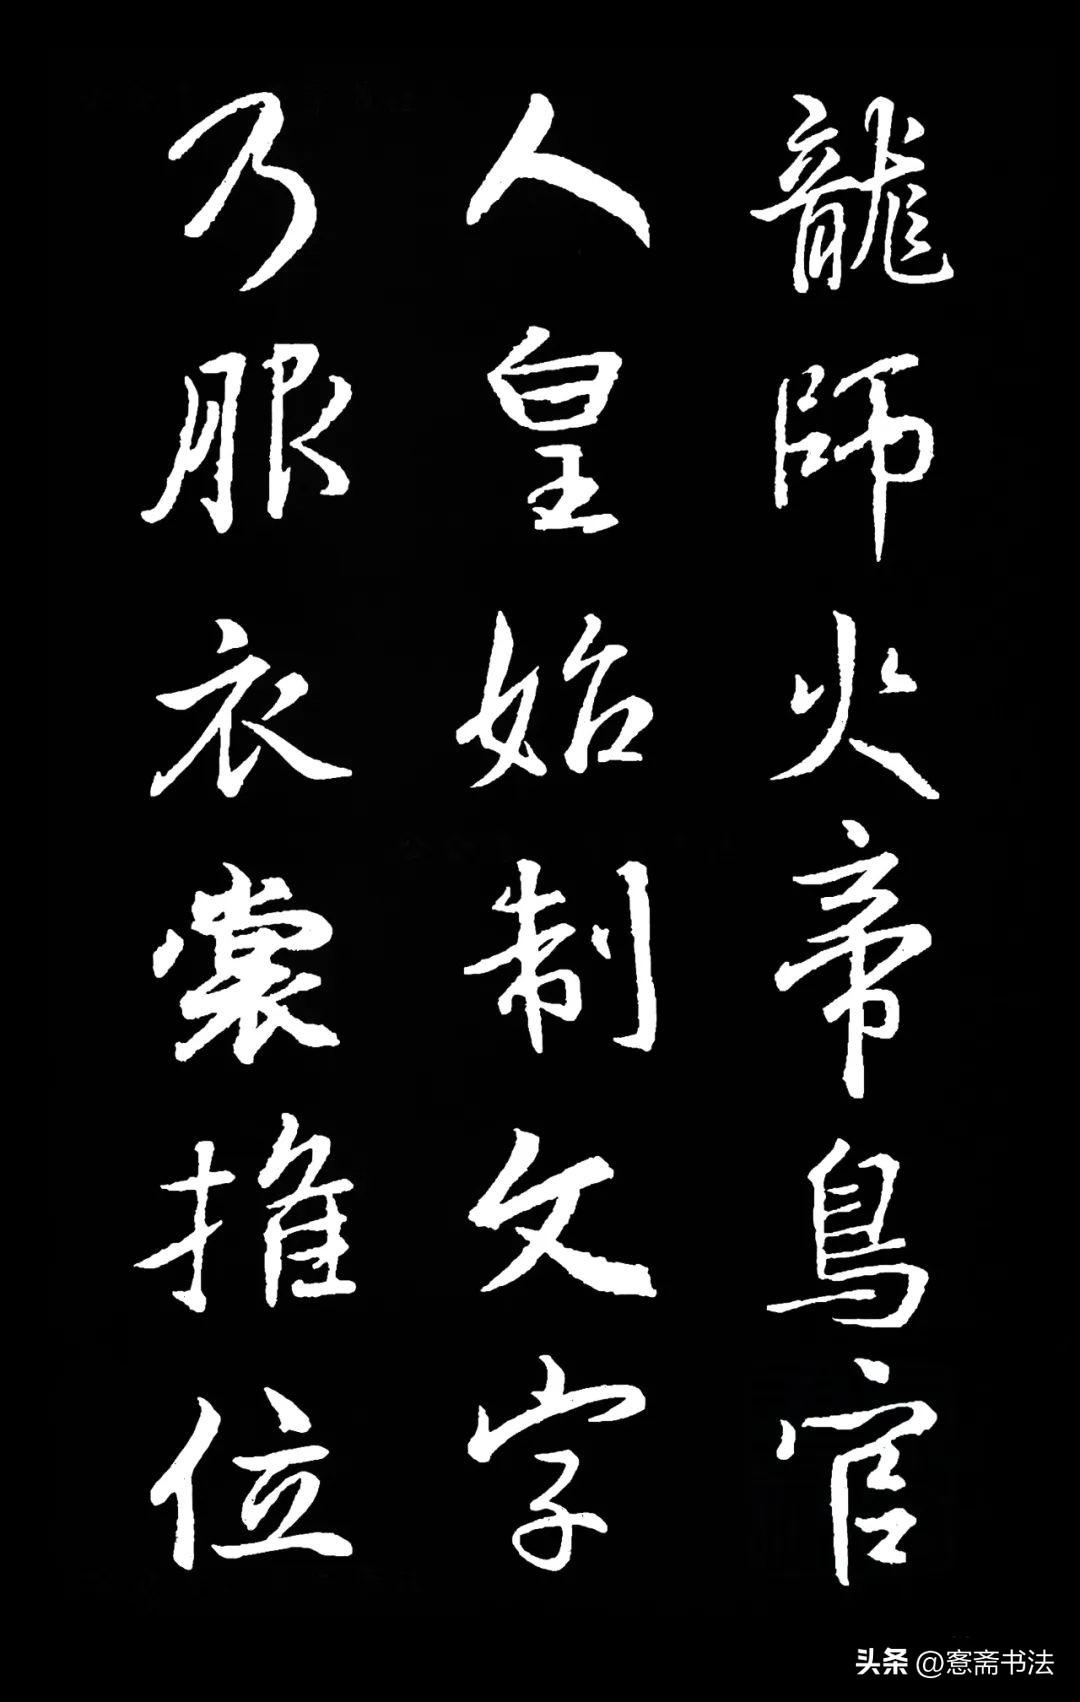 龍師火帝鳥官
人皇始制文字
乃服衣裳推位
头条 @愙斋书法